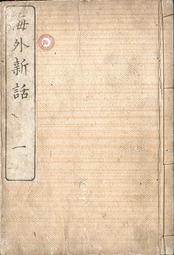 海外新話 一